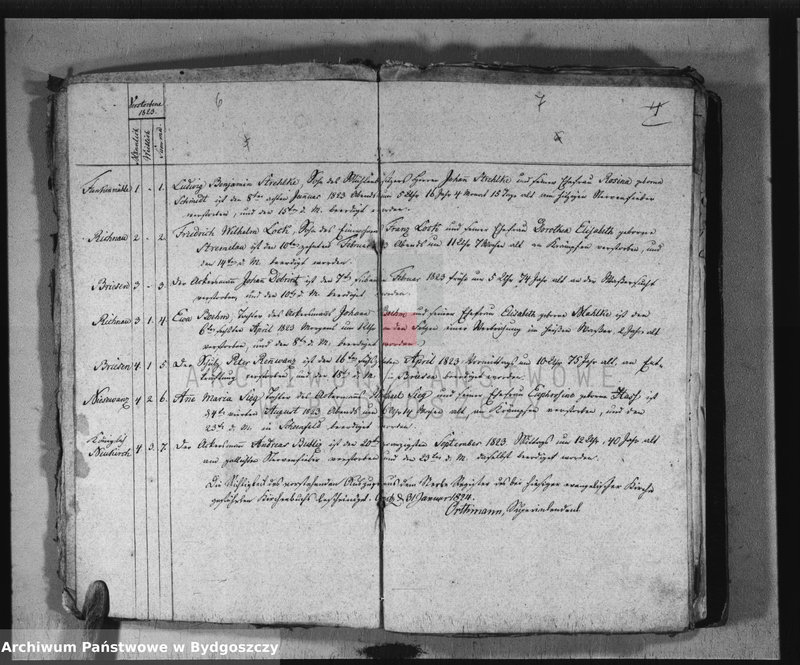 6
7
4
Verstorbene
1823.
Männlich
Weiblich
Summa
1 - 1. Ludwig Benjamin Strehlke, Sohn des Johann Strehlke und seiner Ehefrau Rosina geborne
Schmidt ist den 8ten achten Januar 1823 Abends um 5 Uhr 16 Jahr 4 Monat 15 Tage alt am hitzigen Nervenfieber
verstorben, und den 15ten d. M. beerdigt worden.
Richnau 2 - 2. Friedrich Wilhelm Lock, Sohn des Einwohners Franz Lock und seiner Ehefrau Dorothea Elisabeth geborne
Stremlau ist den 10ten zehnten Februar 1823 Abends um 11 Uhr 7 Wochen alt an Krämpfen verstorben, und
den 14ten d. M. beerdigt worden.
Briesen 3 - 3. Der Ackersmann Johann ist den 7ten siebenten Februar 1823 früh um 5 Uhr 74 Jahr alt an der Wassersucht
verstorben, und den 10ten d. M. beerdigt worden.
Richnau 3 1. 4. Eva Boehm, Tochter des Ackersmanns Johann Boehm und seiner Ehefrau Elisabeth geborne Mahlke ist den
6ten sechsten April 1823 Morgens um 1 Uhr an den Folgen einer Verbrühung im heißen Wasser, 2 Jahr alt
verstorben, und den 8ten d. M. beerdigt worden.
Briesen 4 1 5. Der Peter ist den 16ten April 1823 Vormittags um 10 Uhr 75 Jahr alt, an Ent-
kräftung verstorben, und den 18ten d. M. in Briesen beerdigt worden.
4 2 6. Anna Maria Sieg Tochter des Ackersmanns Michael Sieg und seiner Ehefrau Euphrosine geborne ist
d 4ten vierten August 1823 Abends um 6 Uhr 14 Wochen alt an Krämpfen verstorben, und den
d. M. in Schönfeld beerdigt worden.
Königlich
Neukirch 4 3. 7. Der Ackersmann Andreas ist den 20ten zwanzigsten September 1823 Mittags um 12 Uhr, 40 Jahr alt
am Nervenfieber verstorben und den 23ten d. M. daselbst beerdigt worden.
Die Richtigkeit des vorstehenden Auszuges aus dem Sterbe Register des bei hiesiger evangelischer Kirche
geführten Kirchenbuchs bescheinigt. d. 31 Januar 1824.
Orthmann, Superintendent
ARCHIWUM PAŃSTWOWE
W BYDGOSZCZY
Archiwum Państwowe w Bydgoszczy